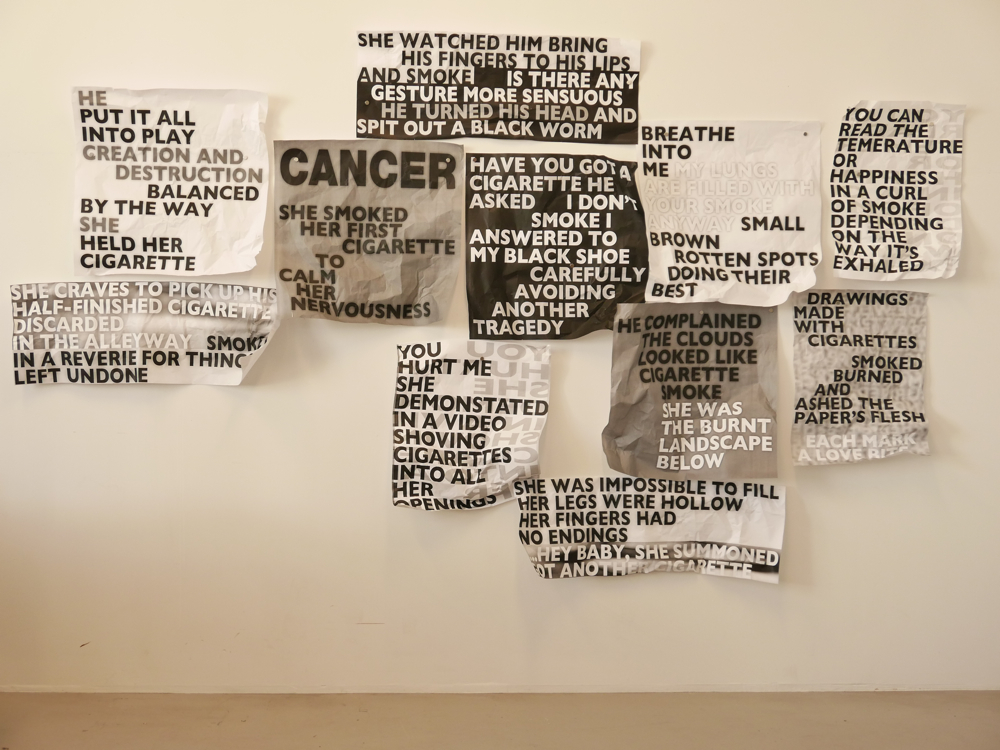 SHE WATCHED HIM BRING
HIS FINGERS TO HIS LIPS
AND SMOKE IS THERE ANY
GESTURE MORE SENSUOUS
HE TURNED HIS HEAD AND
SPIT OUT A BLACK WORM
HE
PUT IT ALL
INTO PLAY
CREATION AND
DESTRUCTION
BALANCED
BY THE WAY
SHE
HELD HER
CIGARETTE
CANCER
SHE SMOKED
HER FIRST
CIGARETTE
TO
CALM
HER
NERVOUSNESS
HAVE YOU GOT A
CIGARETTE HE
ASKED I DON'T
SMOKE I
ANSWERED TO
MY BLACK SHOE
CAREFULLY
AVOIDING
ANOTHER
TRAGEDY
BREATHE
INTO
ME MY LUNGS
ARE FILLED WITH
YOUR SMOKE
ANYWAY SMALL
BROWN
ROTTEN SPOTS
DOING THEIR
BEST
YOU CAN
READ THE
TEMERATURE
OR
HAPPINESS
IN A CURL
OF SMOKE
DEPENDING
ON THE
WAY IT'S
EXHALED
SHE CRAVES TO PICK UP HIS
HALF-FINISHED CIGARETTE
DISCARDED
IN THE ALLEYWAY SMOKE
IN A REVERIE FOR THING
LEFT UNDONE
YOU
HURT ME
SHE
DEMONSTATED
IN A VIDEO
SHOVING
CIGARETTES
INTO ALL
HER
OPENINGS
HE COMPLAINED
THE CLOUDS
LOOKED LIKE
CIGARETTE
SMOKE
SHE WAS
THE BURNT
LANDSCAPE
BELOW
DRAWINGS
MADE
WITH
CIGARETTES
SMOKED
BURNED
AND
ASHED THE
PAPER'S FLESH
EACH MARK
A LOVE BITE
SHE WAS IMPOSSIBLE TO FILL
HER LEGS WERE HOLLOW
HER FINGERS HAD
NO ENDINGS
...HEY BABY, SHE SUMMONED
GOT ANOTHER CIGARETTE